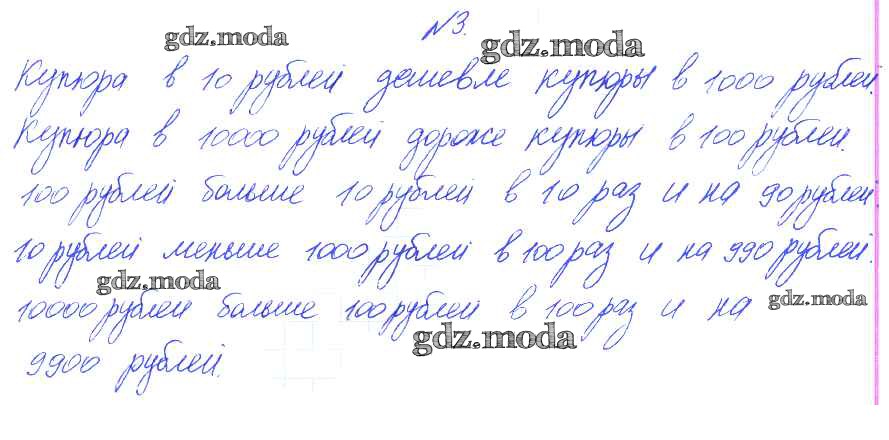 №3.
gdz.moda
gdz.moda
Купюра в 10 рублей дешевле купюры в 1000 рублей.
Купюра в 10000 рублей дороже купюры в 100 рублей.
100 рублей больше 10 рублей в 10 раз и на 90 рублей
10 рублей меньше 1000 рублей в 100 раз и на 990 рублей.
gdz.moda
gdz.moda
10000 рублей больше 100 рублей в 100 раз и на
gdz.moda
9900 рублей.